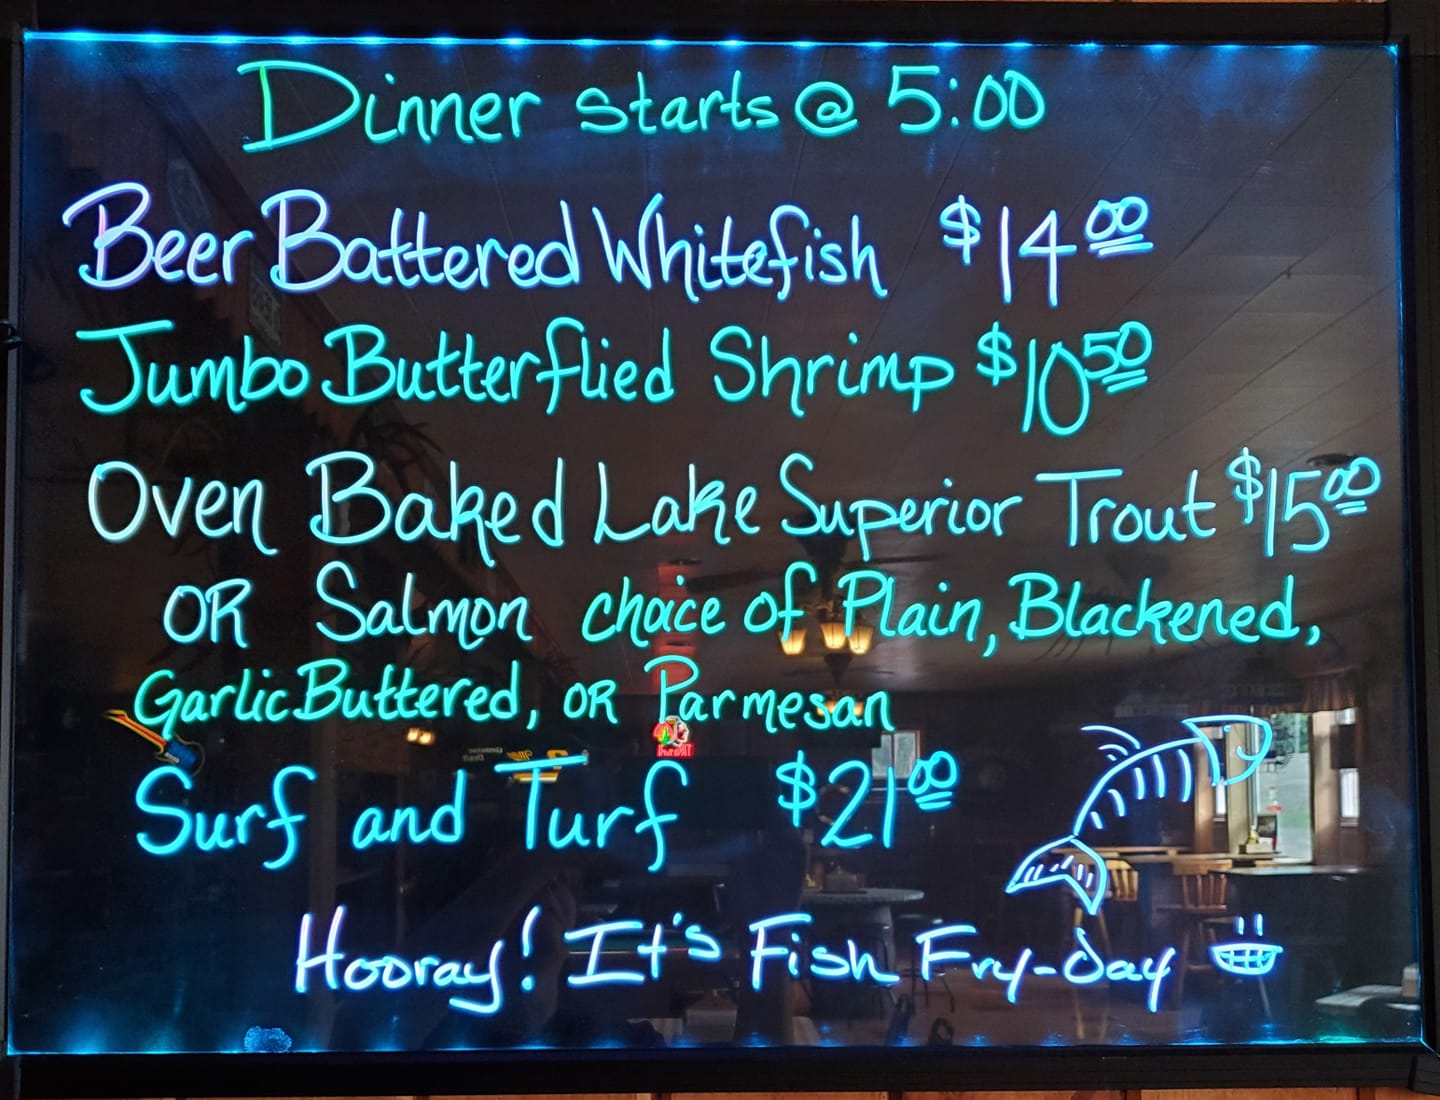 Dinner starts @ 5:00
Beer Battered Whitefish $14.00
Jumbo Butterflied Shrimp $10.50
Oven Baked Lake Superior Trout $15.00
OR Salmon choice of Plain, Blackened,
Garlic Buttered, OR Parmesan
Surf and Turf $21.00
Hooray! It's Fish Fry-Day